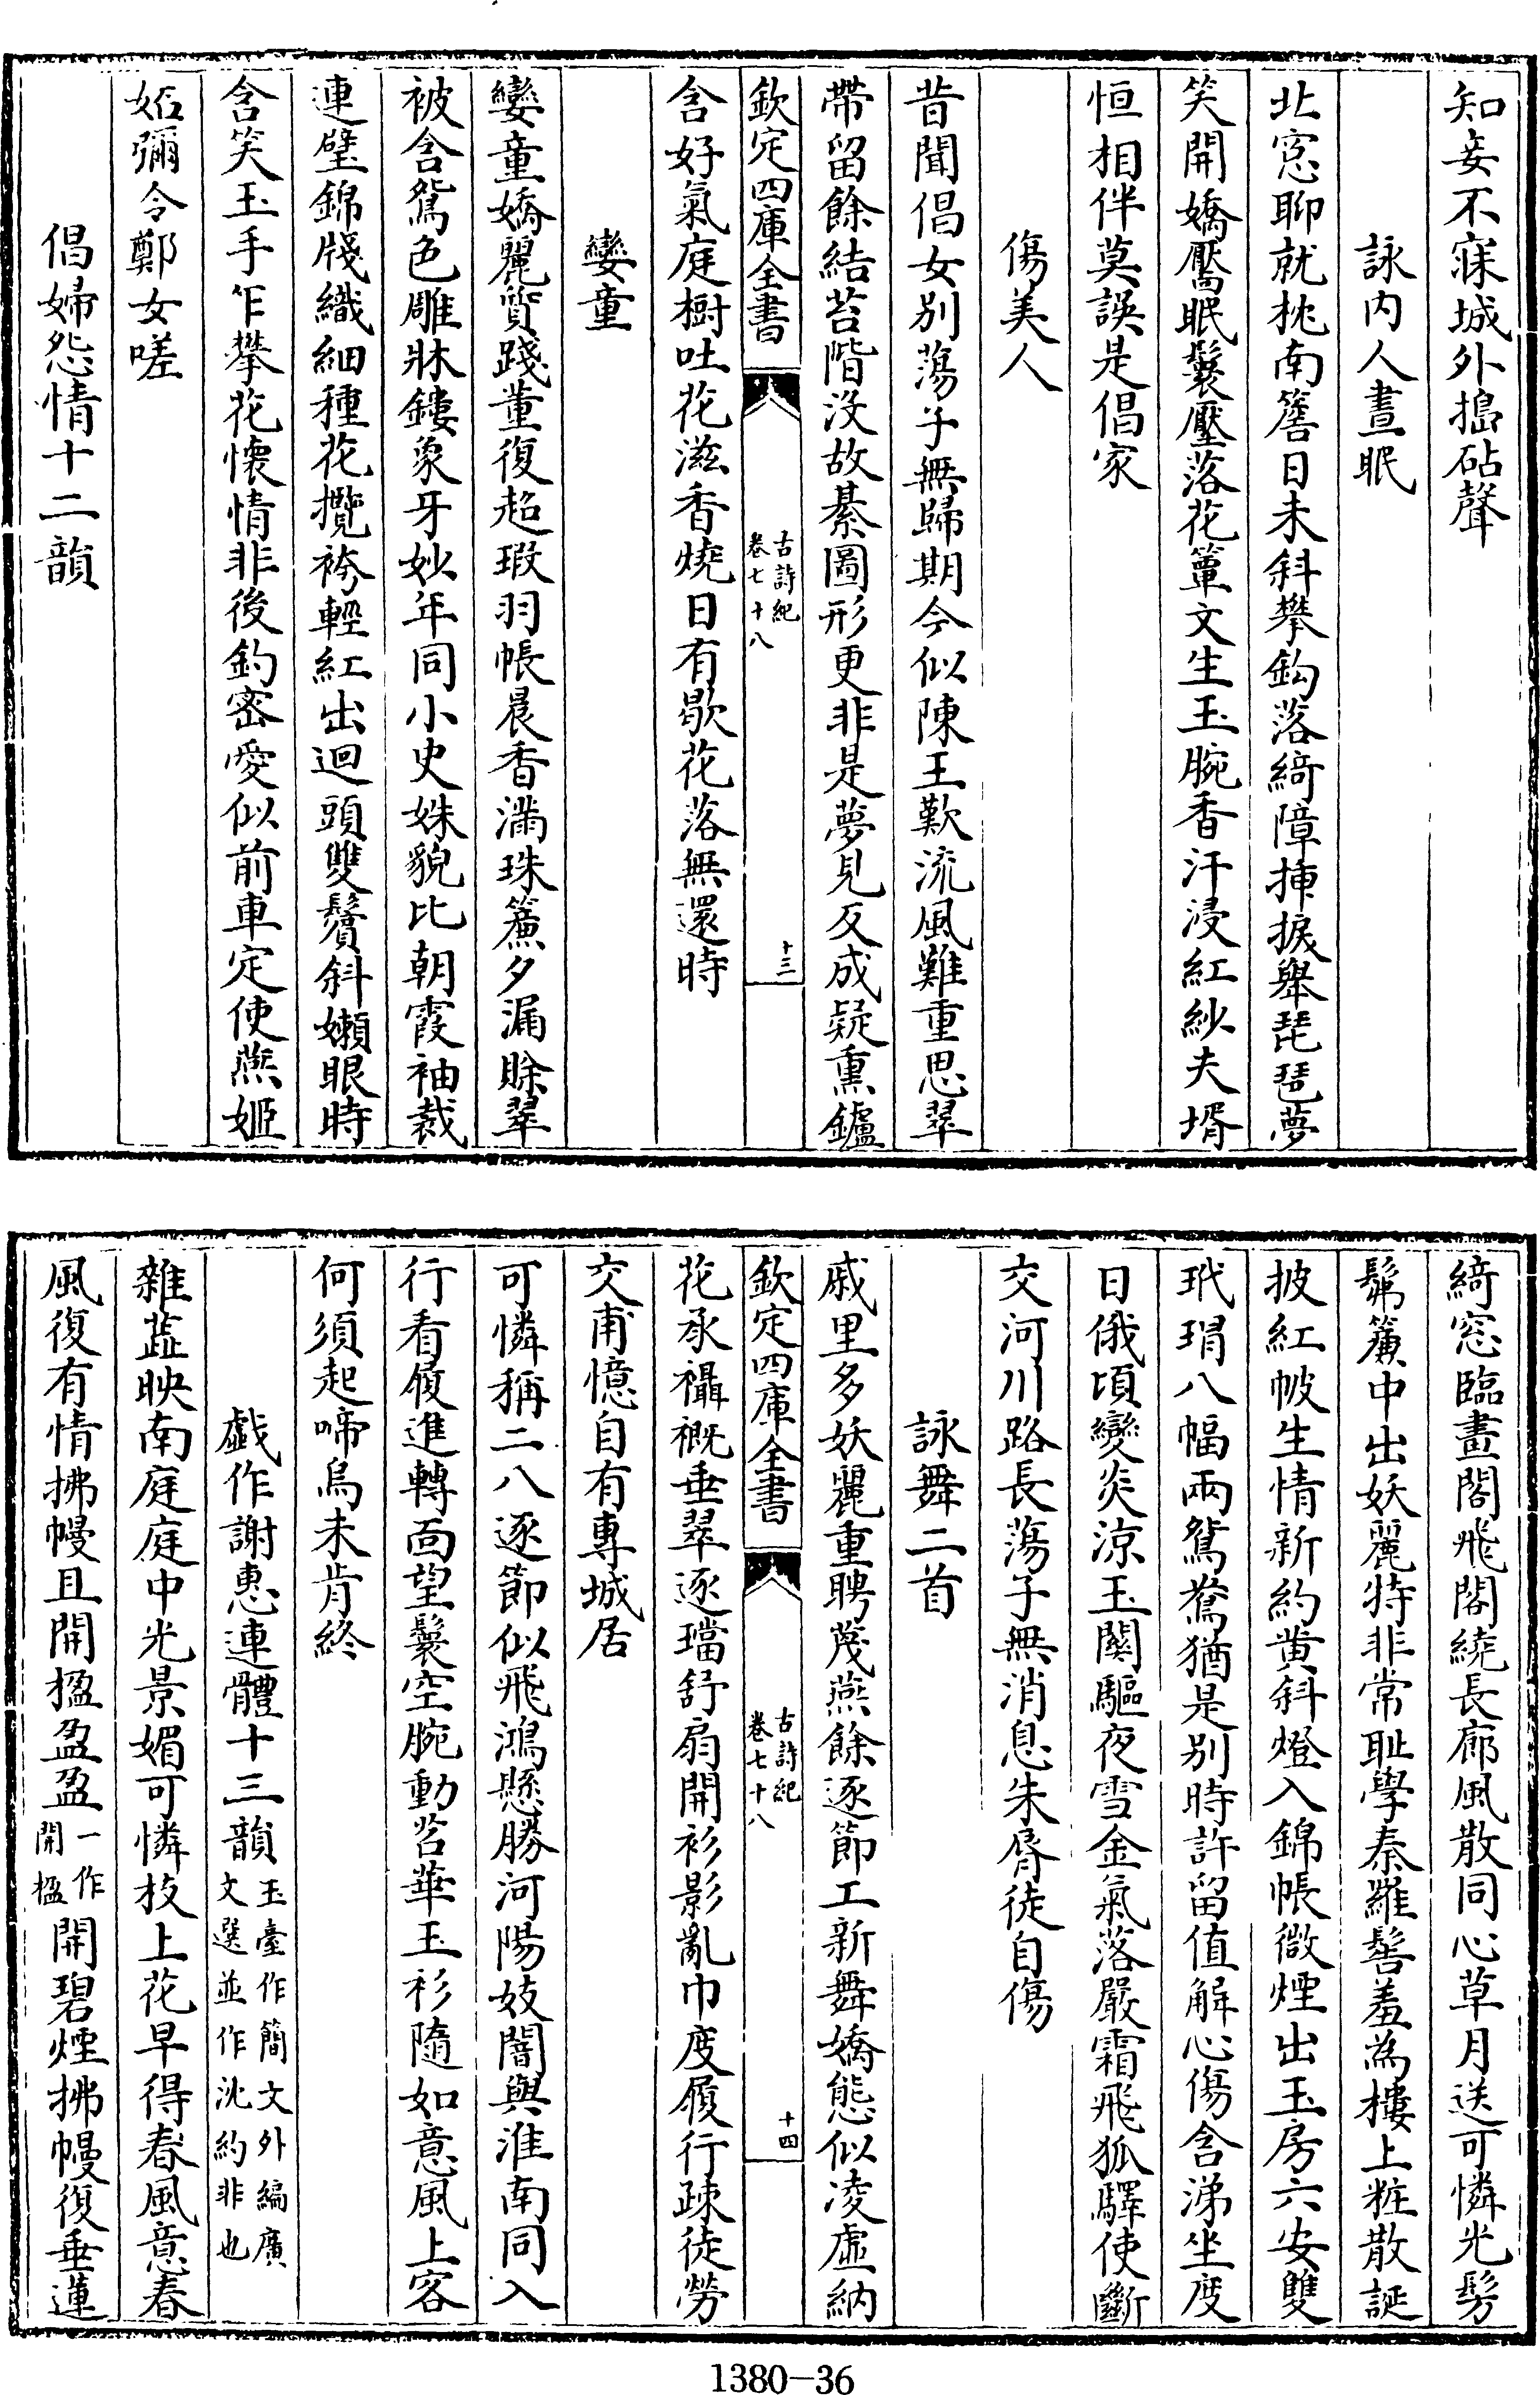 知妾不寐城外搗砧聲
詠内人晝眠
北窓聊就枕南簷日未斜攀鈎落綺障揷捩舉琵琶夢
笑開嬌靨眠鬟壓落花簟文生玉腕香汗浸紅紗夫壻
恒相伴莫誤是倡家
傷美人
昔聞倡女别蕩子無歸期今似陳王歎流風難重思翠
帶留餘結苔階没故綦圖形更非是夢見反成疑熏鑪
欽定四庫全書
古詩紀
卷七十八
十三
含好氣庭樹吐花滋香燒日有歇花落無還時
孌童
孌童嬌麗質踐董復超瑕羽帳晨香滿珠簾夕漏賖翠
被含鴛色雕牀鏤象牙妙年同小史姝貌比朝霞袖裁
連璧錦牋織細種花攬袴輕紅出迴頭雙鬢斜嬾眼時
含笑玉手乍攀花懷情非後釣密愛似前車定使燕姬
妬彌令鄭女嗟
倡婦怨情十二韻
綺窓臨畫閣飛閣繞長廊風散同心草月送可憐光髣
髴簾中出妖麗特非常耻學秦羅髻羞為樓上粧散誕
披紅帔生情新約黄斜燈入錦帳微煙出玉房六安雙
玳瑁八幅兩鴛鴦猶是别時許留值解心傷含涕坐度
日俄頃變炎凉玉關驅夜雪金氣落嚴霜飛狐驛使斷
交河川路長蕩子無消息朱脣徒自傷
詠舞二首
戚里多妖麗重聘蔑燕餘逐節工新舞嬌態似凌虛納
欽定四庫全書
古詩紀
卷七十八
十四
花承襵概垂翠逐璫舒扇開衫影亂巾度履行疎徒勞
交甫憶自有專城居
可憐稱二八逐節似飛鴻懸勝河陽妓闇與淮南同入
行看履進轉面望鬟空腕動苕華玉衫隨如意風上客
何須起啼烏未肯終
戯作謝惠連體十三韻玉臺作簡文外編廣文選並作沈約非也
雜蘂映南庭庭中光景媚可憐枝上花早得春風意春
風復有情拂幔且開楹盈盈一作開楹開碧煙拂幔復垂蓮
1380-36